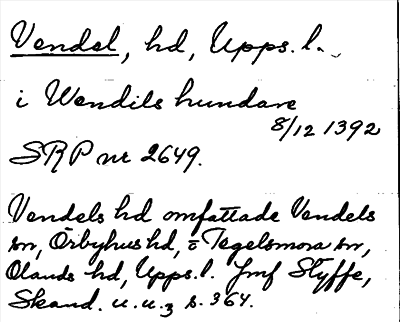 Vendel, hd, Upps. l.
i Wendils hundare
8/12 1392
SRP nr 2649.
Vendels hd omfattade Vendels
sn, Örbyhus hd, o Tegelsmora sn,
Olands hd, Upps. l. Jmf Styffe,
Skand. u. u. 3 s. 364.